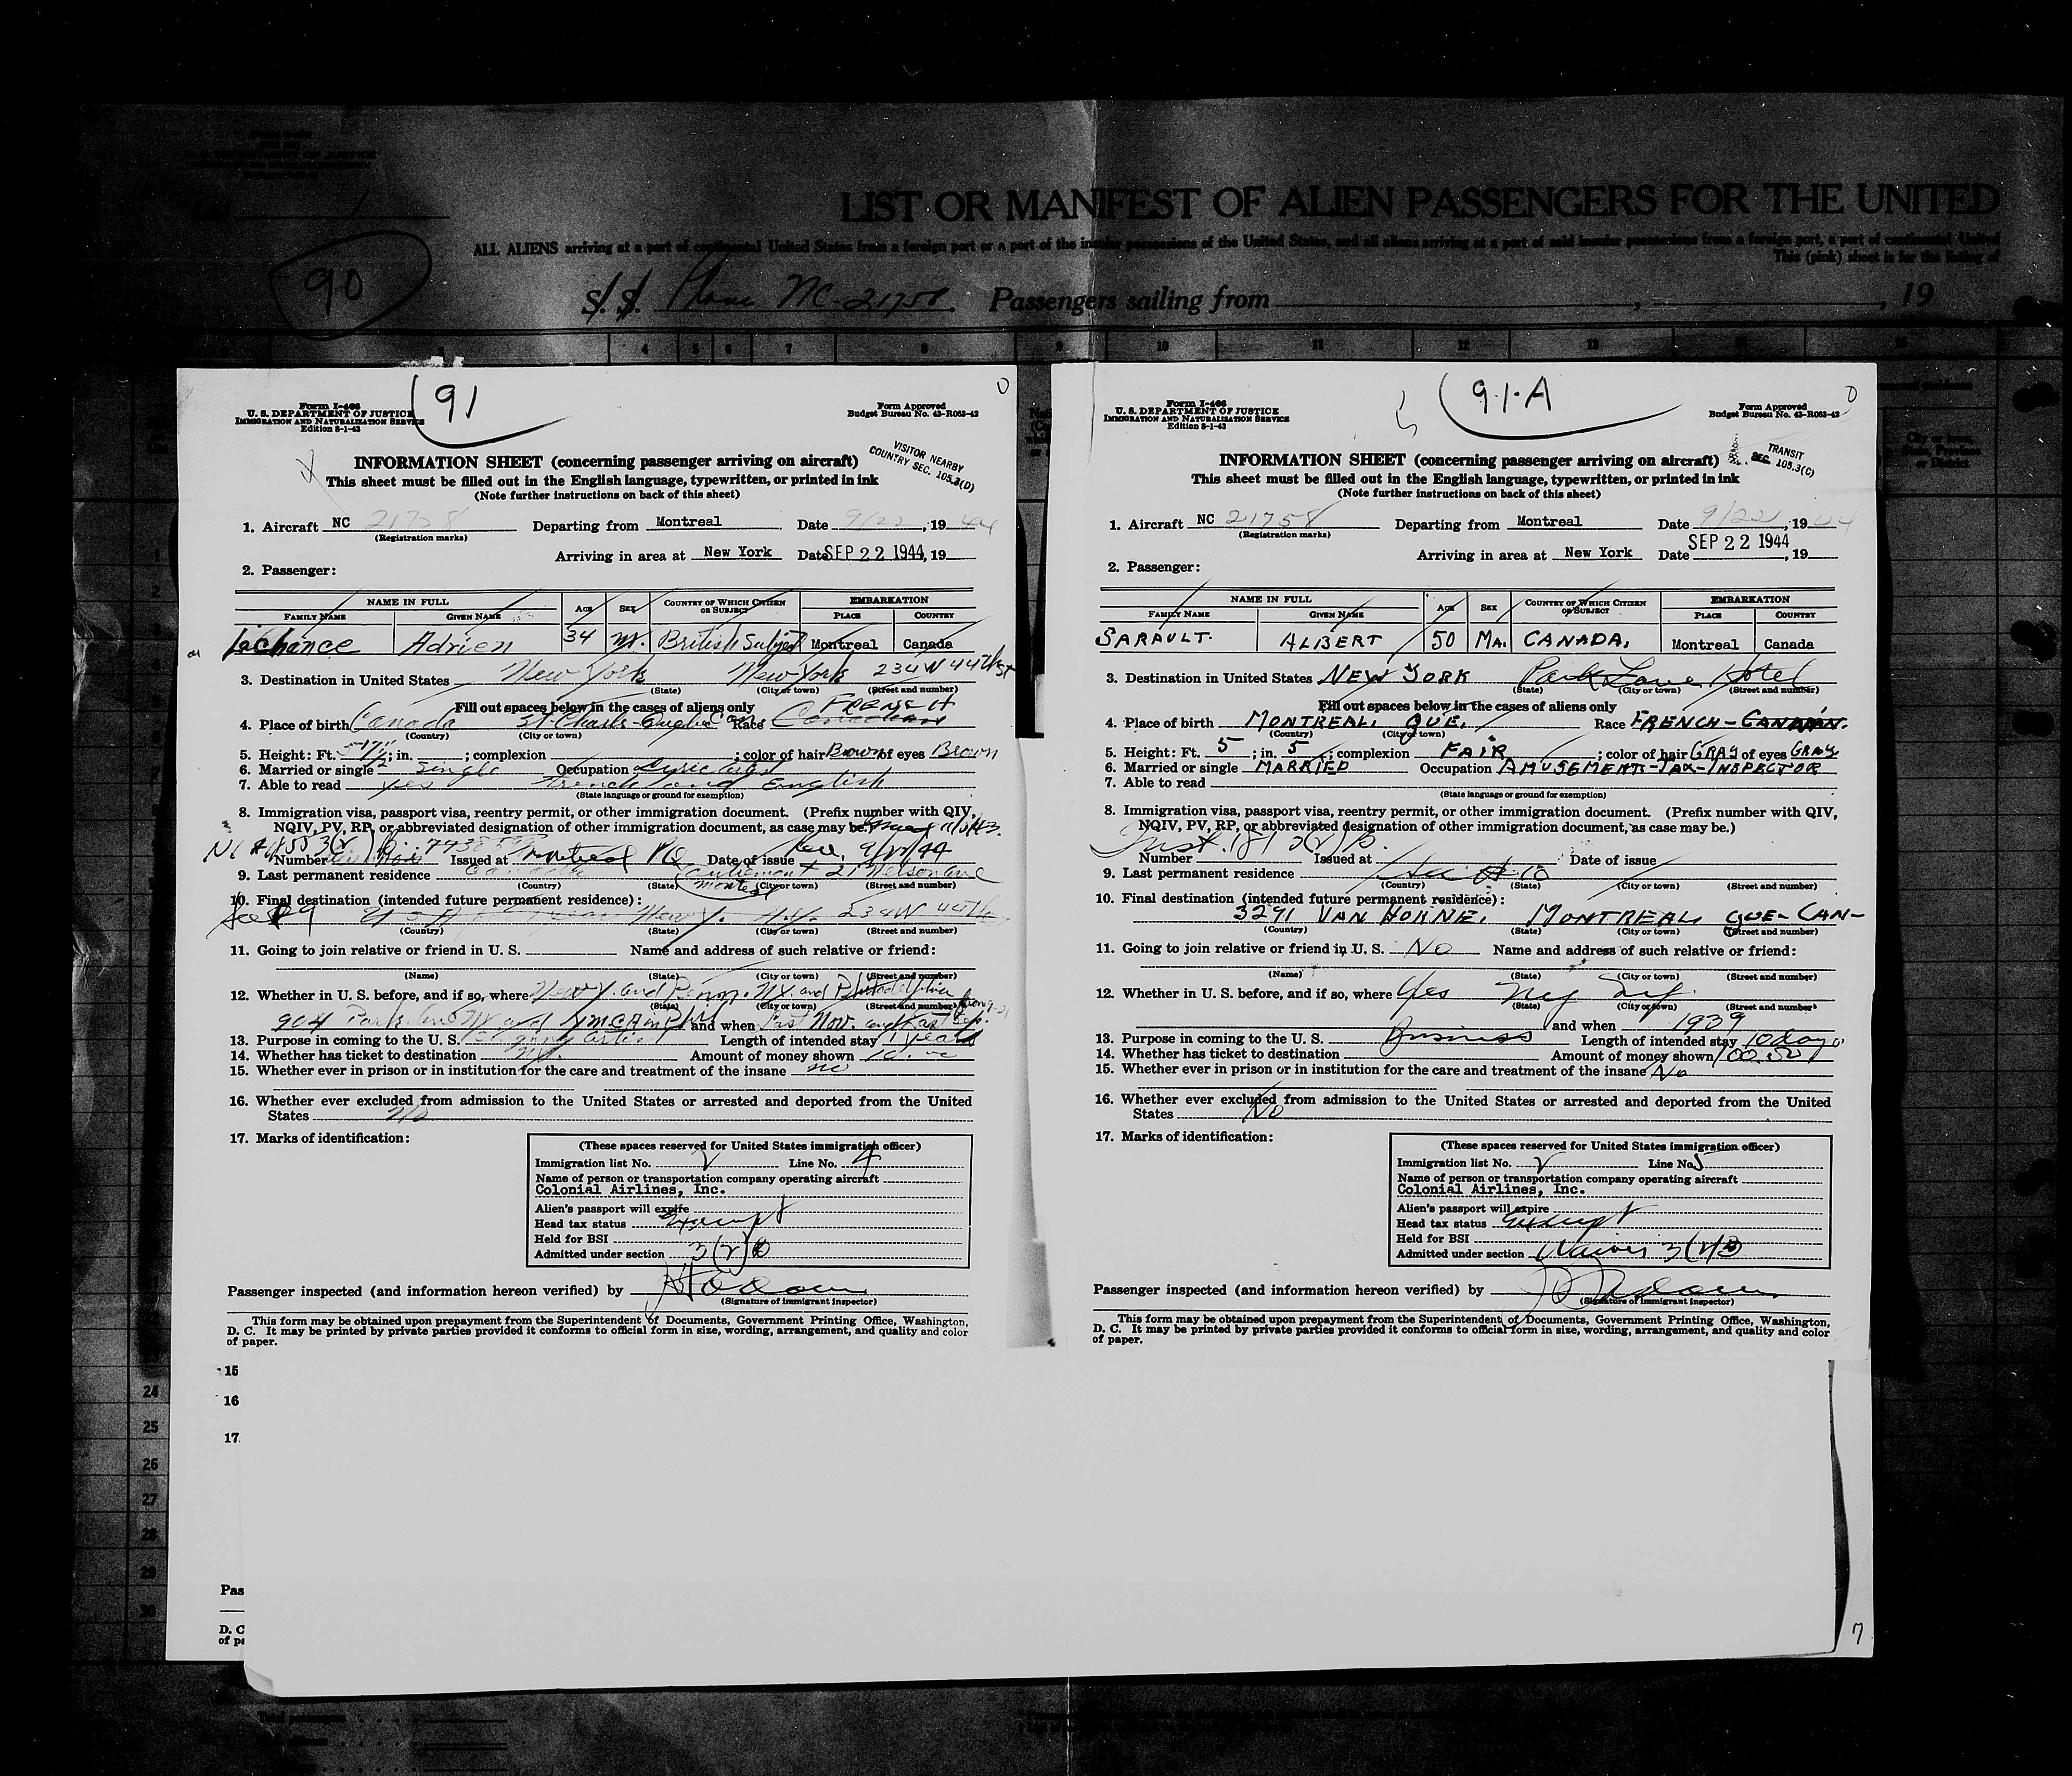 LIST OR MANIFEST OF ALIEN PASSENGERS FOR THE UNITED
ALL ALIENS arriving at a port of continental United States from a foreign port or a port of the insular possessions of the United States, and all aliens arriving at a port of said insular possessions from a foreign port, a port of continental United
This (pink) sheet is for the listing of
90
S. S. Plane NC-21758 Passengers sailing from , 19
3 4 5 6 7 8 9 10 11 12 13 14 15
91
Form I-466
U. S. DEPARTMENT OF JUSTICE
IMMIGRATION AND NATURALIZATION SERVICE
Edition 8-1-43
Form Approved
Budget Bureau No. 43-R063-42
VISITOR NEARBY
COUNTRY SEC. 105.3(D)
INFORMATION SHEET (concerning passenger arriving on aircraft)
This sheet must be filled out in the English language, typewritten, or printed in ink
(Note further instructions on back of this sheet)
1. Aircraft NC 21758 Departing from Montreal Date 9/22, 1944
(Registration marks)
Arriving in area at New York Date SEP 22 1944, 19
2. Passenger:
NAME IN FULL AGE SEX COUNTRY OF WHICH CITIZEN OR SUBJECT EMBARKATION
FAMILY NAME GIVEN NAME PLACE COUNTRY
Lachance Adrien 34 M. British Subject Montreal Canada
3. Destination in United States New York New York 234 W 44th St
(State) (City or town) (Street and number)
Fill out spaces below in the cases of aliens only
4. Place of birth Canada St. Charles Race French Canadian
(Country) (City or town)
5. Height: Ft. 5'7 1/2; in. ; complexion ; color of hair Brown of eyes Brown
6. Married or single Single Occupation Lyric
7. Able to read yes French and English
(State language or ground for exemption)
8. Immigration visa, passport visa, reentry permit, or other immigration document. (Prefix number with QIV,
NQIV, PV, RP, or abbreviated designation of other immigration document, as case may be.)
Number Issued at Montreal PQ Date of issue
9. Last permanent residence Canada 21 Nelson Ave
(Country) (State) (City or town) (Street and number)
10. Final destination (intended future permanent residence):
See #9 234 W 44th
(Country) (State) (City or town) (Street and number)
11. Going to join relative or friend in U. S. Name and address of such relative or friend:
(Name) (State) (City or town) (Street and number)
12. Whether in U. S. before, and if so, where New Y. and Penn. NY. and Philadelphia
(State) (City or town) (Street and number)
904 Park Ave NY and YMCA in Phil and when Last Nov. and Last Sep.
13. Purpose in coming to the U. S. Length of intended stay 1 year
14. Whether has ticket to destination No. Amount of money shown
15. Whether ever in prison or in institution for the care and treatment of the insane no
16. Whether ever excluded from admission to the United States or arrested and deported from the United
States No
17. Marks of identification:
(These spaces reserved for United States immigration officer)
Immigration list No. 2 Line No. 4
Name of person or transportation company operating aircraft
Colonial Airlines, Inc.
Alien's passport will expire
Head tax status Exempt
Held for BSI
Admitted under section 3(2)
Passenger inspected (and information hereon verified) by
(Signature of immigrant inspector)
This form may be obtained upon prepayment from the Superintendent of Documents, Government Printing Office, Washington,
D. C. It may be printed by private parties provided it conforms to official form in size, wording, arrangement, and quality and color
of paper.
91-A
Form I-466
U. S. DEPARTMENT OF JUSTICE
IMMIGRATION AND NATURALIZATION SERVICE
Edition 8-1-43
Form Approved
Budget Bureau No. 43-R063-43
TRANSIT
SEC. 105.3(C)
INFORMATION SHEET (concerning passenger arriving on aircraft)
This sheet must be filled out in the English language, typewritten, or printed in ink
(Note further instructions on back of this sheet)
1. Aircraft NC 21758 Departing from Montreal Date 9/22, 1944
(Registration marks)
Arriving in area at New York Date SEP 22 1944, 19
2. Passenger:
NAME IN FULL AGE SEX COUNTRY OF WHICH CITIZEN OR SUBJECT EMBARKATION
FAMILY NAME GIVEN NAME PLACE COUNTRY
SARAULT. ALBERT 50 MA. CANADA. Montreal Canada
3. Destination in United States NEW YORK Park Lane Hotel
(State) (City or town) (Street and number)
Fill out spaces below in the cases of aliens only
4. Place of birth MONTREAL, QUE. Race FRENCH-CANADIAN.
(Country) (City or town)
5. Height: Ft. 5; in. 5; complexion FAIR; color of hair GRAY of eyes GRAY
6. Married or single MARRIED Occupation AMUSEMENT-TAX-INSPECTOR
7. Able to read
(State language or ground for exemption)
8. Immigration visa, passport visa, reentry permit, or other immigration document. (Prefix number with QIV,
NQIV, PV, RP, or abbreviated designation of other immigration document, as case may be.)
Number Issued at Date of issue
9. Last permanent residence See #10
(Country) (State) (City or town) (Street and number)
10. Final destination (intended future permanent residence):
3291 VAN HORNE, MONTREAL, QUE-CAN-
(Country) (State) (City or town) (Street and number)
11. Going to join relative or friend in U. S. No Name and address of such relative or friend:
(Name) (State) (City or town) (Street and number)
12. Whether in U. S. before, and if so, where Yes Ny Ny.
(State) (City or town) (Street and number)
and when 1939
13. Purpose in coming to the U. S. Business Length of intended stay 10 days
14. Whether has ticket to destination Amount of money shown 100.00
15. Whether ever in prison or in institution for the care and treatment of the insane No
16. Whether ever excluded from admission to the United States or arrested and deported from the United
States No
17. Marks of identification:
(These spaces reserved for United States immigration officer)
Immigration list No. 2 Line No. 5
Name of person or transportation company operating aircraft
Colonial Airlines, Inc.
Alien's passport will expire
Head tax status Exempt
Held for BSI
Admitted under section Waiver 3(2)B
Passenger inspected (and information hereon verified) by
(Signature of immigrant inspector)
This form may be obtained upon prepayment from the Superintendent of Documents, Government Printing Office, Washington,
D. C. It may be printed by private parties provided it conforms to official form in size, wording, arrangement, and quality and color
of paper.
15
16
17.
24
25
26
27
28
29
30
Pas
D. C
of pa
7